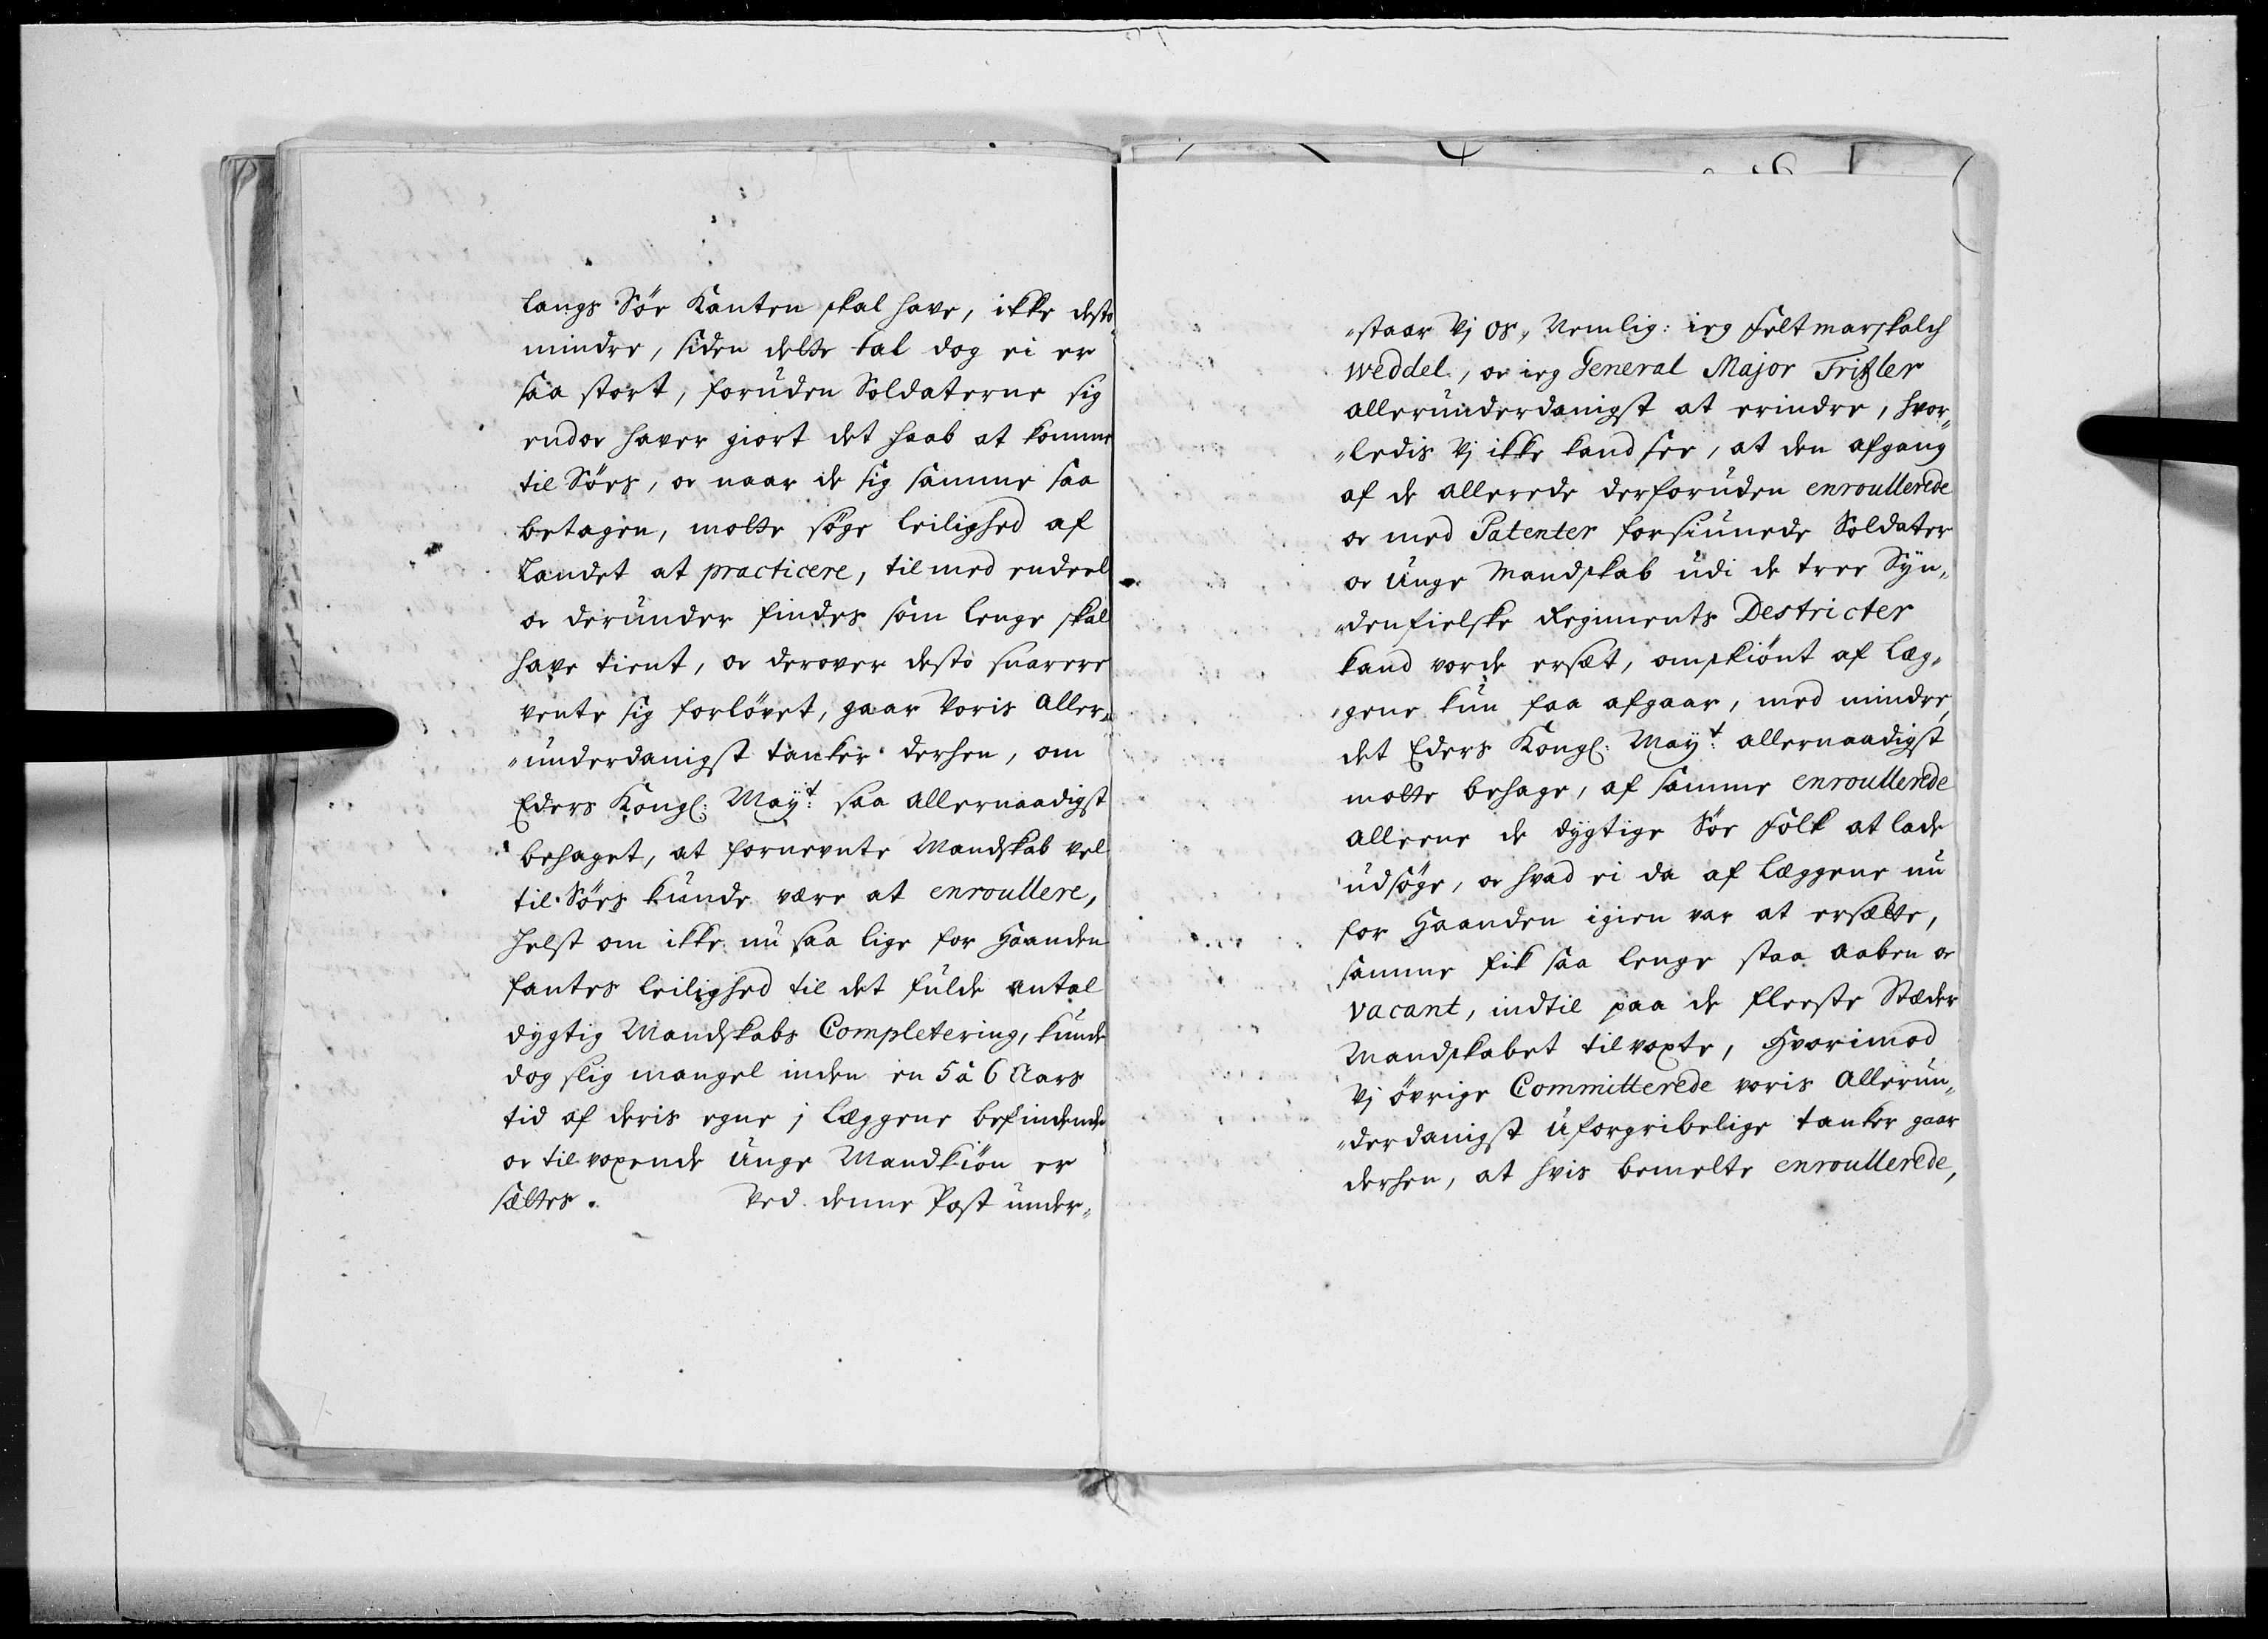 langs Söe Kanten skal have, ikke desto
mindre, siden dette tal dog ei er
saa stort, foruden Soldaterne sig
endoe haver giort det haab at komme
til Söes, oe naar de sig samme saa
betagen, motte söge leilighed af
Landet at practicere, til med endeel
oe derunder findes som lenge skal
have tient, oe derover desto snarere
vente sig forlövet, gaar Voris Aller„
„underdanigst tanker derhen, om
Eders Kongl: Mayt: saa allernaadigst
behaget, at fornevnte Mandskab vel
til Söes kunde være at enroullere,
helst om ikke nu saa lige for Haanden
fantes leilighed til det fulde antal
dygtig Mandskabs Completering, kunde
dog slig mangel inden en 5 à 6 Aars
tid af deris egne j læggene befindende
oe til voxende Unge Mandkiön er
sættes. Ved denne Post under„
„staar Vj os, Nemlig: ieg Feltmarskalch
Weddel, oe ieg General Major Tritzler
allerunderdanigst at erindre, hvor„
„ledis Vj ikke kand see, at den afgang
af de allerede derforuden enroullerede
oe med Patenter forsiunede Soldater
oe Unge Mandskab udi de tree Syn„
„denfielske Regiments Destricter
kand vorde ersæt, omskiönt af Læg„
„gene kun faa afgaar, med mindre,
det Eders Kongl: Mayt: allernaadigst
motte behage, af samme enroullerede
alleene de dygtige Söe Folk at lade
udsöge, oe hvad ei da af Læggene nu
for Haanden igien var at ersætte,
samme fik saa lenge staa aaben oe
vacant, indtil paa de fleeste Stæder
Mandskabet tilvoxte, Hvorimod
Vj övrige Committerede voris Allerun„
„derdanigst Uforgribelige tanker gaar
derhen, at hvis bemelte enroullerede,